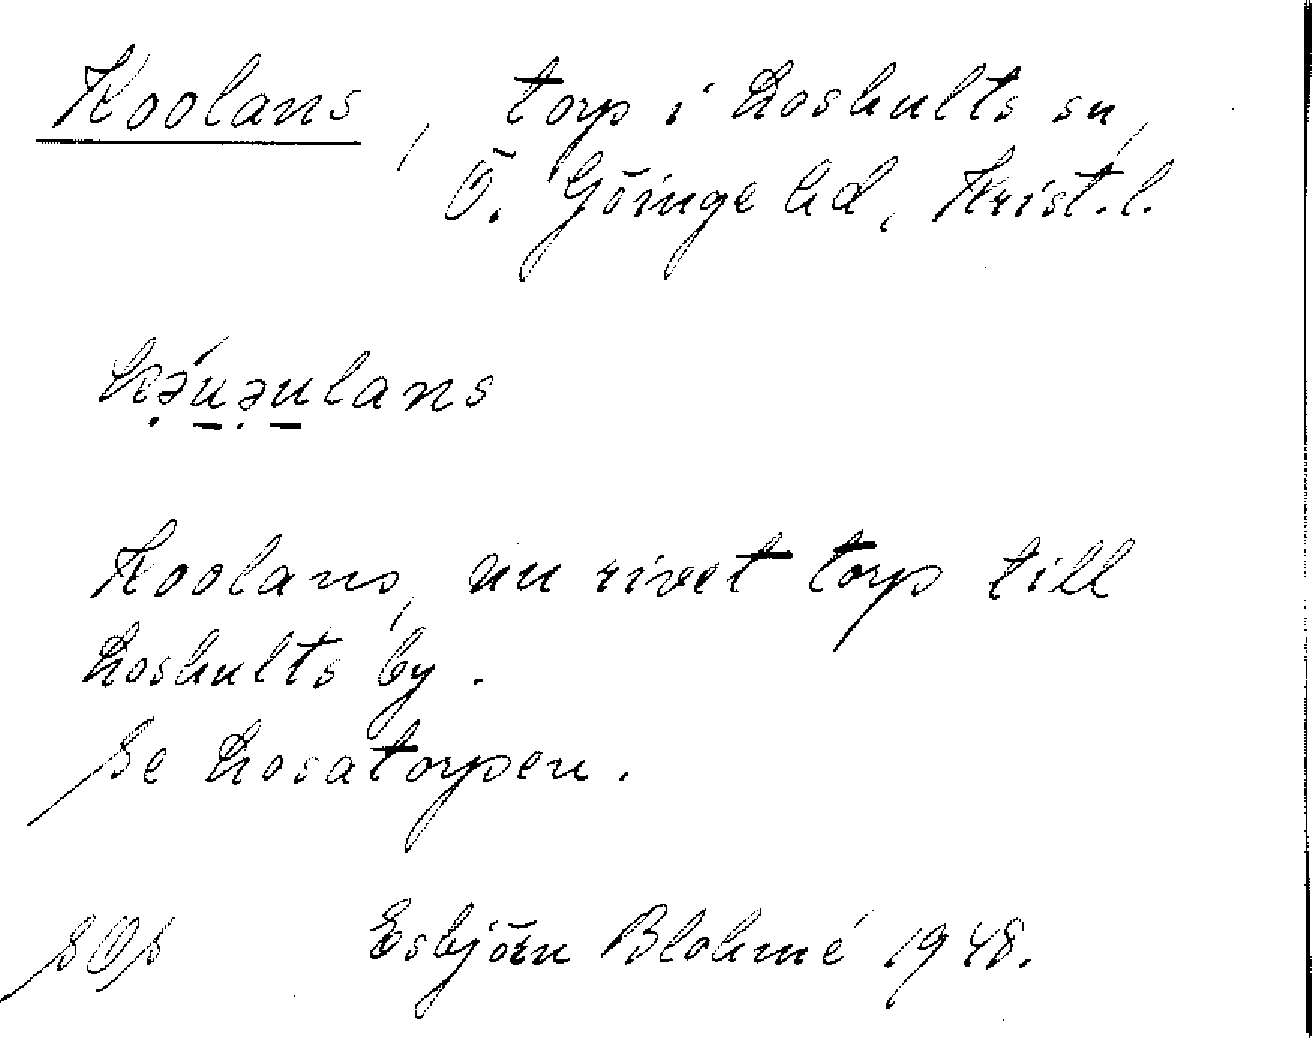 Koolans, torp i Loshults sn,
Ö. Göinge hd, Krist. l.
kə́u̱əu̱lans
Koolans, nu rivet torp till
Loshults by.
Se Losatorpen.
SOS Esbjörn Blohmé 1948.